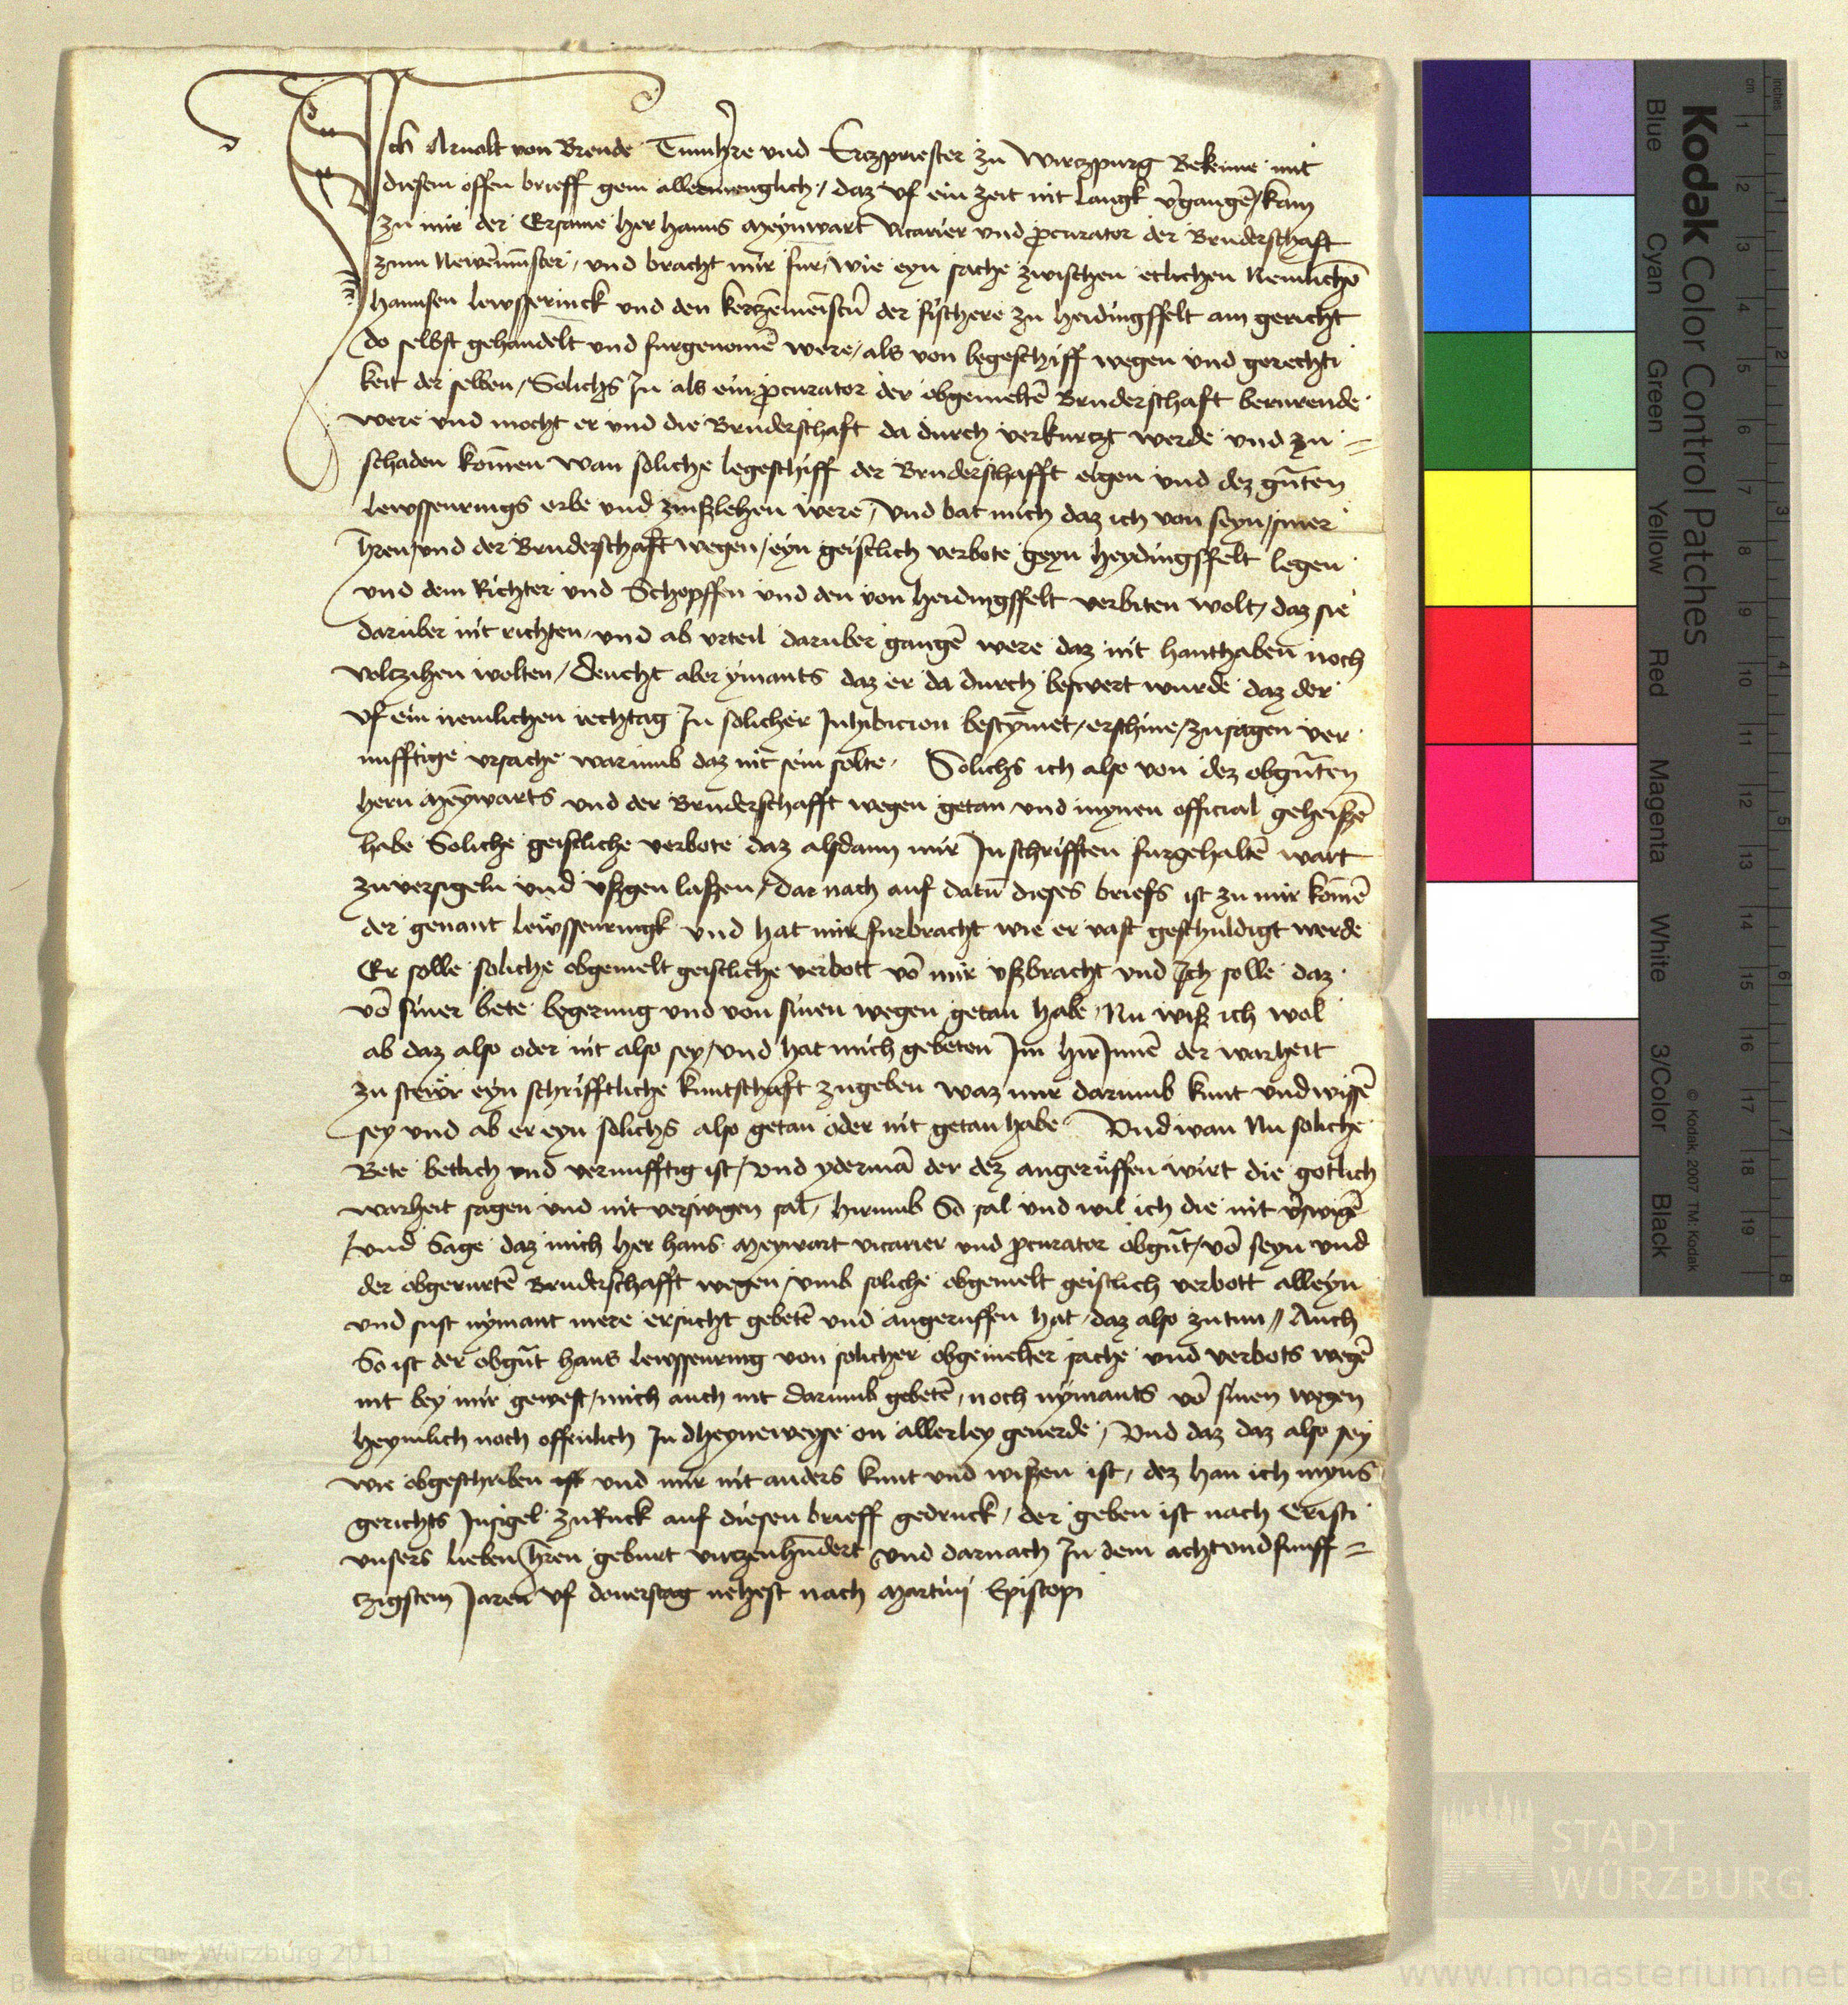 Ich Arnolt von Brende Tumhre und Erczpriester zu Wirczpurg Bekenne mit
diesem offen brieff gein allermenglich / daz vf ein zeit nit langk v̄gangē / kam
zu mir der Ersame her Hanns Meynwart vicarier und pcurator der Bruderschaft
zum Newēmūster / und bracht mir fur / wie eyn sache zwischen etlichen Nemlichē
Hannsen lewsserinck und den kerczēmeistern der fischere zu Heidingsfelt am gericht
do selbst gehandelt und furgenomē were / als von legeschiff wegen und gerechti
keit der selben / Solichs In als ein pcurator der obgemeltē Bruderschaft berurende
were und mocht er und die Bruderschaft da durch verkurczt werde und zu =
schaden komen wan soliche legeschiff der Bruderschafft eigen und dez gnāten
lewssenrings erbe und zinszlehen were / Und bat mich daz ich von seyn / siner
hren / und der Bruderschaft wegen / eyn geistlich verbote geyn Heydingsfelt legen
und dem Richter und Schopffen und den von Heidingsfelt verbiten wolt / daz sie
daruber nit richten / und ab vrteil daruber gangē were daz nit hanthaben noch
volczihen wolten / Deucht aber ymants daz er da durch beswert wurde daz der
vf ein nemlichen rechtag In solicher Inhibicion bestymet / erschine / zusagen ver
nufftige vrsache warumb daz nit sein solte / Solichs ich also von dez obgnāten
hern Meywarts und der Bruderschafft wegen getan und mynen official geheiszē
habe Soliche geistliche verbote daz alsdann mir In schrifften furgehaltē wart
zuversigeln und vszgen laszen / dar nach auf datū dieses briefs ist zu mir komē
der genant lewssenringk und hat mir furbracht wie er vast geschuldigt werde
Er solle soliche obgemelt geistliche verbott vō mir vszbracht und Ich solle daz
vō siner bete begerung und von sinen wegen getan habe / Nu wisz ich wol
ab daz also oder nit also sey / und hat mich gebeten Im hir Innē der warheit
zu stewr eyn schrifftliche kuntschaft zugeben waz mir darumb kunt und wissē
sey und ab er eyn solichs also getan oder nit getan habe Und wan Nu soliche
Bete betlich und vernufftig ist / und ydermā der dez angeruffen wirt die gotlich
warheit sagen und nit verswigen sal / hirumb So sal und wil ich die nit v̄swigē
/ und Sage daz mich her hans Meywart vicarier und pcurator obgnāt / vō seyn und
der obgerurtē Bruderschafft wegen / umb soliche obgemelt geistlich verbott alleyn
und sust nymant mere ersucht gebetē und angeruffen hat / daz also zutun // Auch
So ist der obgnāt Hans lewssenring von solicher obgemelter sache und verbots wegē
nit bey mir gewest / mich auch nit darumb gebetē / noch nymants vō sinen wegen
heymlich noch offenlich In dheyneweyse on allerley geuerde / Und daz daz also sey
wie obgeschriben ist und mir nit anders kunt und wiszen ist / dez han ich myns
gerichts Insigel zu Ruck auf diesen brieff gedruck / der geben ist nach Cristi
unsers lieben hren geburt virczenhundert und darnach In dem acht und funff =
czigstem Jaren vf donerstag nehest nach Martinj Episcopi
Kodak Color Control Patches
Blue Cyan Green Yellow Red Magenta White 3/Color Black
© Kodak, 2007 TM: Kodak
inches
cm
1 2 3 4 5 6 7 8 9 10 11 12 13 14 15 16 17 18 19
1 2 3 4 5 6 7 8
STADT
WÜRZBURG
© Stadtarchiv Würzburg 2011
www.monasterium.net